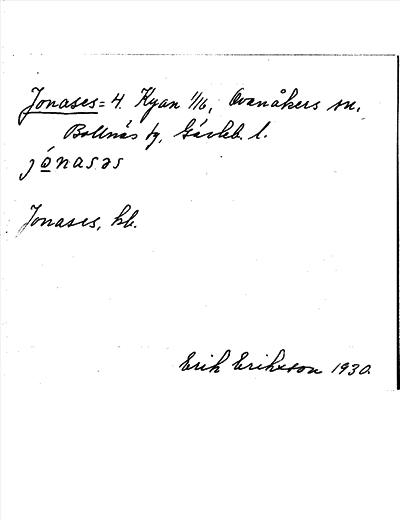 Jonases = 4. Kyan 1/16, Ovanåkers sn,
Bollnäs tg, Gävleb. l.
jó̲nasəs
Jonases, hb.
Erik Eriksson 1930.